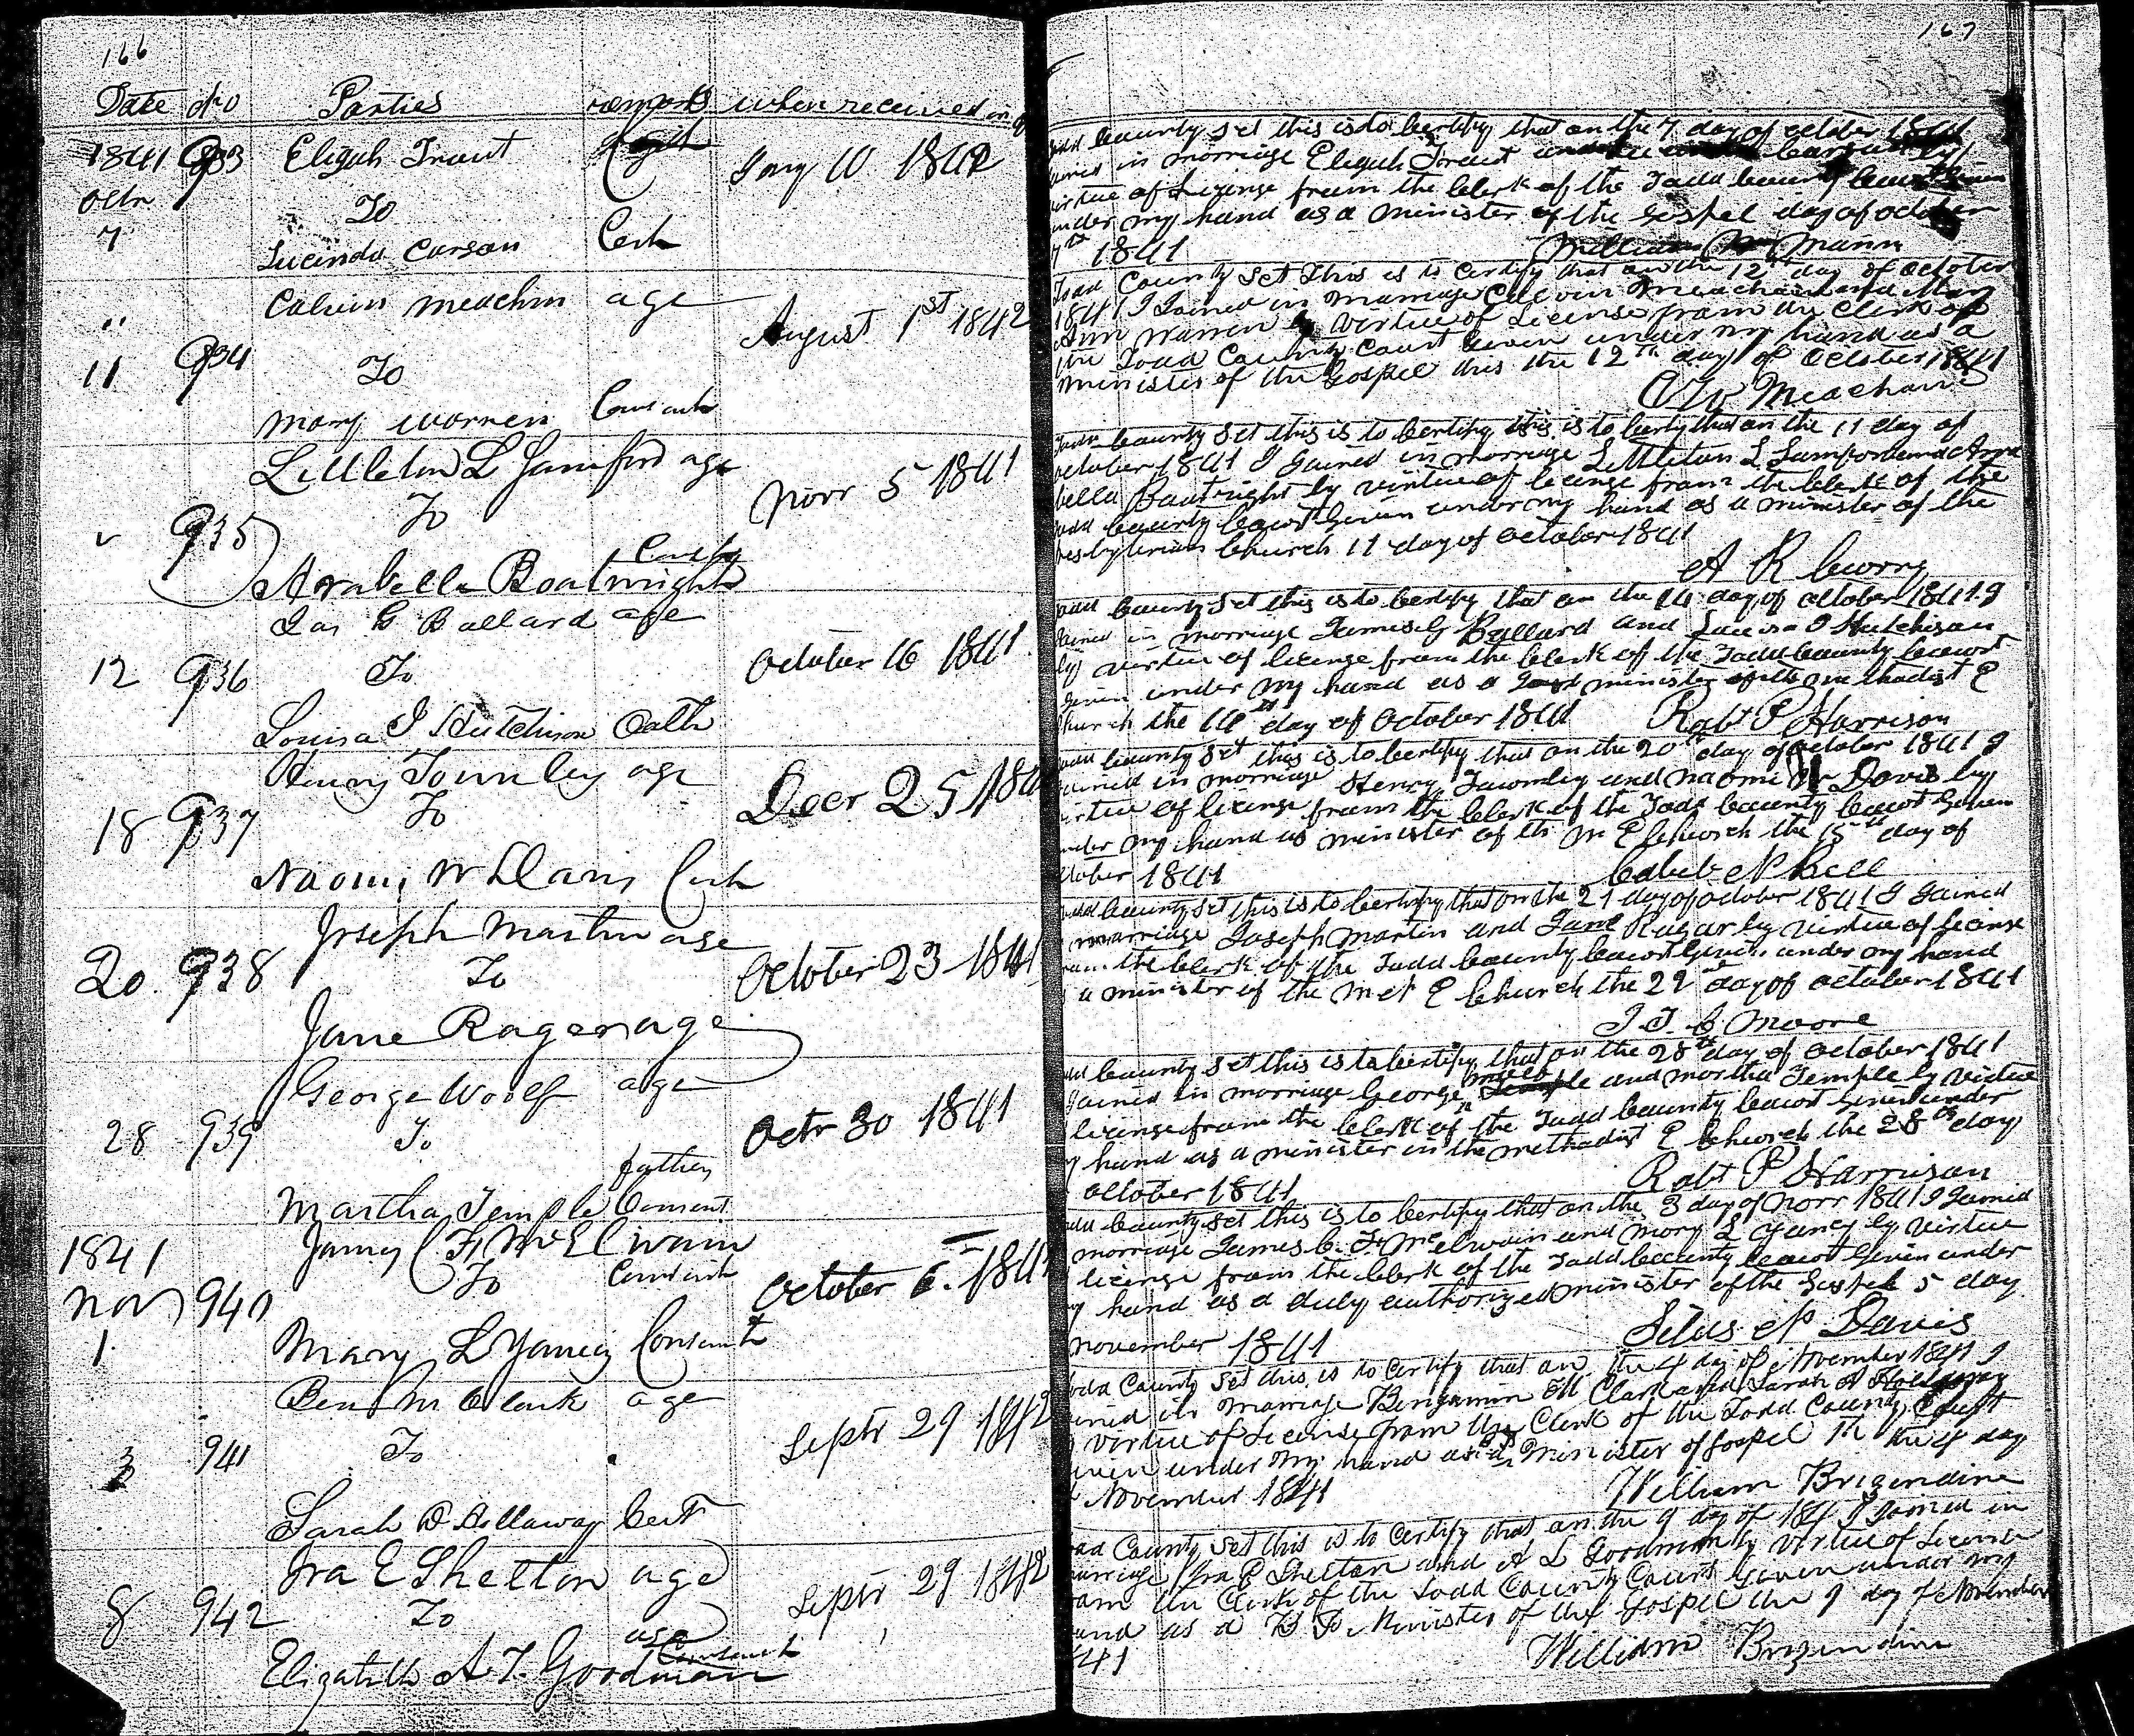 166
Date No Parties remarks when received in
1841 933 Elijah Traut
Octr To Jany 10 1842
7 Lucinda Carson Cert
" Calvin Meachim age
11 934 To August 1st 1842
Mary Warren Consent
Littleton L Jamiford age
935 To Novr 5 1841
Arabella Boatwright
Jas G Ballard age
12 936 To October 16 1841
Louisa J Hutchison Oath
Henry Townley age
18 937 To Decr 25 184
Naomi W Davis Cert
Joseph Martin age
20 938 To October 23 1841
Jane Rager age
George Woolf age
28 939 To Octr 30 1841
father
Martha Temple Consent
James C F McElwain
1841 To Consent
Nov 940 October 6 184
1 Mary L Yancy Consent
Benj M Clark age
3 941 To Septr 29 1842
Sarah Hollaway Cert
Ira E Shelton age
8 942 To Septr 29 1842
age
Elizabeth A T Goodman Consent
167
County Set this is to Certify that on the 7 day of october 1841
in morriage Elijah Traut
virtue of License from the Clerk of the Todd County Court Given
under my hand as a minister of the Gospel day of october
7th 1841 William Mann
Todd County Set This is to Certify that on the 12th day of October
1841 I Joined in Marriage Calvin Meacham and Mary
Ann Warren by virtue of License from the Clerk of
the Todd County Court Given under my hand as a
minister of the Gospel this the 12th day of October 1841
Meacham
County Set this is to Certify this is to Certy that on the 11 day of
october 1841 I Gained in morriage Littleton L Lumpord and Ara
bella Boatright by virtue of license from the Clerk of the
County Court Given under my hand as a minister of the
Presbyterian Church 11 day of october 1841
A R
County Set this is to Certify that on the 14 day of october 1841 I
in morriage James G Ballard and Louisa J Hutchison
by virtue of license from the Clerk of the Todd County Court
Given under my hand as a minister of the methodist E
Church the day of october 1841 Robt P Harrison
County Set this is to Certify that on the 20th day of october 1841 I
in morriage Henry Townley and Naomi W Davis by
virtue of license from the Clerk of the Todd County Court Given
under my hand as minister of the M E Church the 15th day of
october 1841 Caleb N Bell
County Set this is to Certify that on the 21 day of october 1841 I Gained
marriage Joseph Martin and Jane Ragar by virtue of license
the Clerk of the Todd County Court Given under my hand
a minister of the Met E Church the 22 day of october 1841
J. T. C Moore
County Set this is to Certify that on the 28th day of october 1841
Gained in morriage George and Martha Temple by virtue
license from the Clerk of the Todd County Court Given under
hand as a minister in the methodist E Church the 28th day
october 1841 Robt P Harrison
County Set this is to Certify that on the 3 day of Novr 1841 I Gained
morriage James C. F. McElwain and Mary L Yancy by virtue
license from the Clerk of the Todd County Court Given under
hand as a duly authorized minister of the Gospel 5 day
november 1841 Silas N Davis
Todd County Set this is to Certify that on the 4 day of November 1841 I
in Marriage Benjamin M Clark and Sarah
virtue of License from the Clerk of the Todd County Court
under my hand as a Minister of Gospel the 4 day
November 1841 William Brizendine
County Set this is to Certify that on the 9 day of 184 I Joined in
marriage Ira E Shelton and A L Goodman by virtue of License
the Clerk of the Todd County Court Given under my
hand as a Minister of the Gospel the 9 day of November
41 William Brizendine